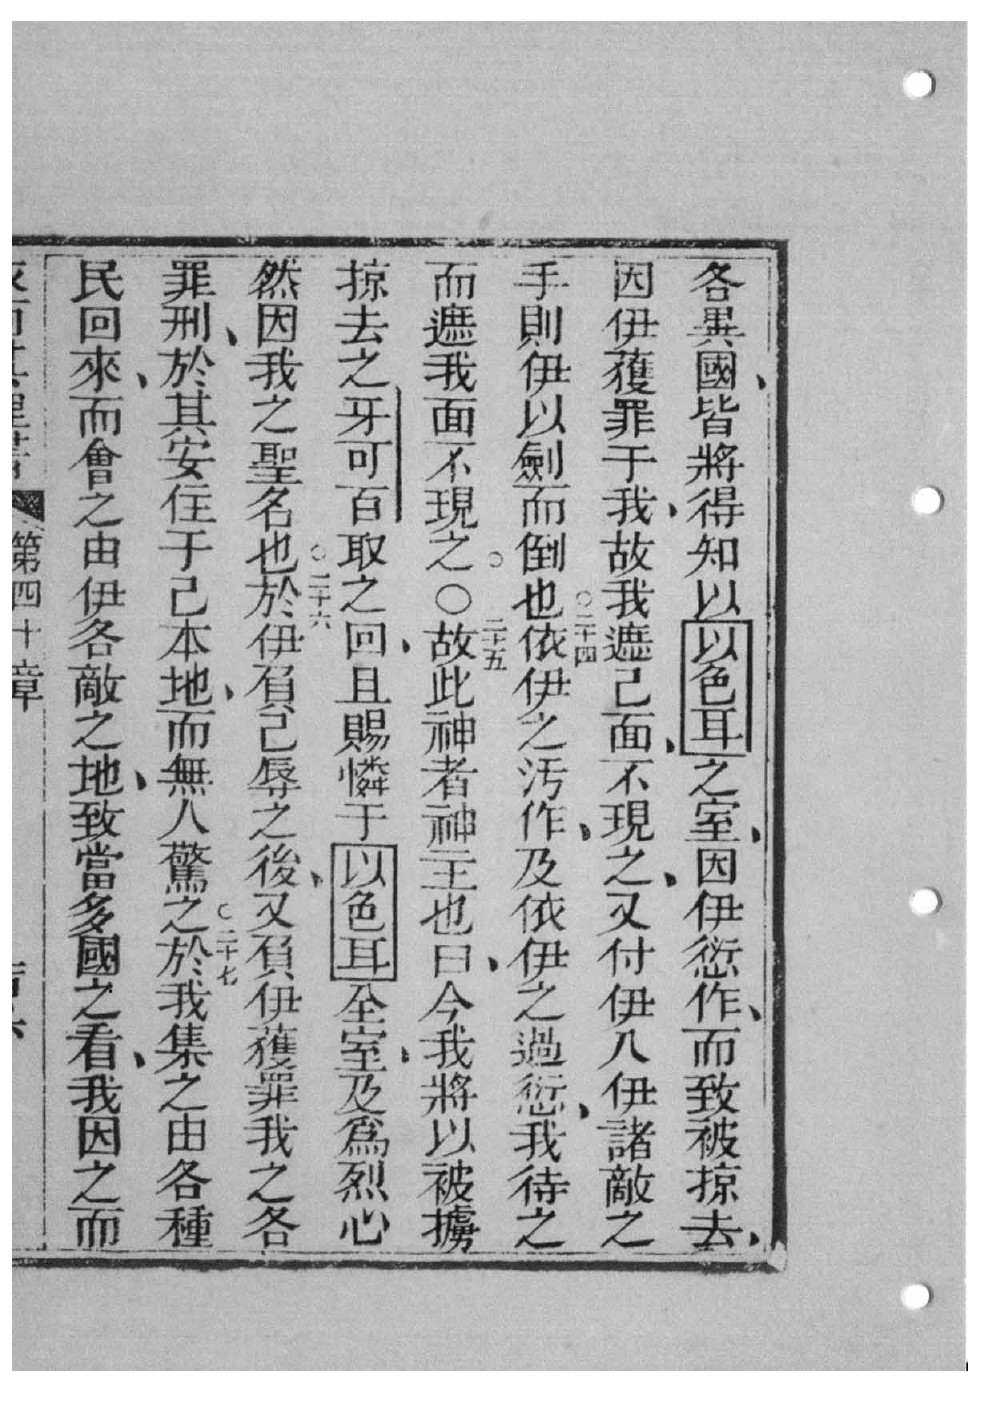 各異國、皆將得知以以色耳之室、因伊愆作、而致被掠去、
因伊獲罪于我、故我遮己面、不現之、又付伊入伊諸敵之
手則伊以劍而倒也○二十四依伊之污作、及依伊之過愆、我待之
而遮我面不現之○○二十五故此神者神主也曰、今我將以被擄
掠去之牙可百取之回、且賜憐于以色耳全室、及爲烈心
然因我之聖名也○二十六於伊負己辱之後、又負伊獲罪我之各
罪刑、於其安住于己本地、而無人驚之○二十七於我集之由各種
民回來、而會之由伊各敵之地、致當多國之看、我因之而
第四十章